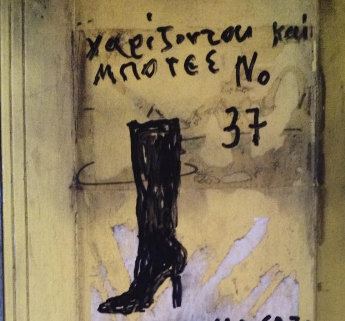 χαρίζονται και
ΜΠΟΤΕΣ Νο
37